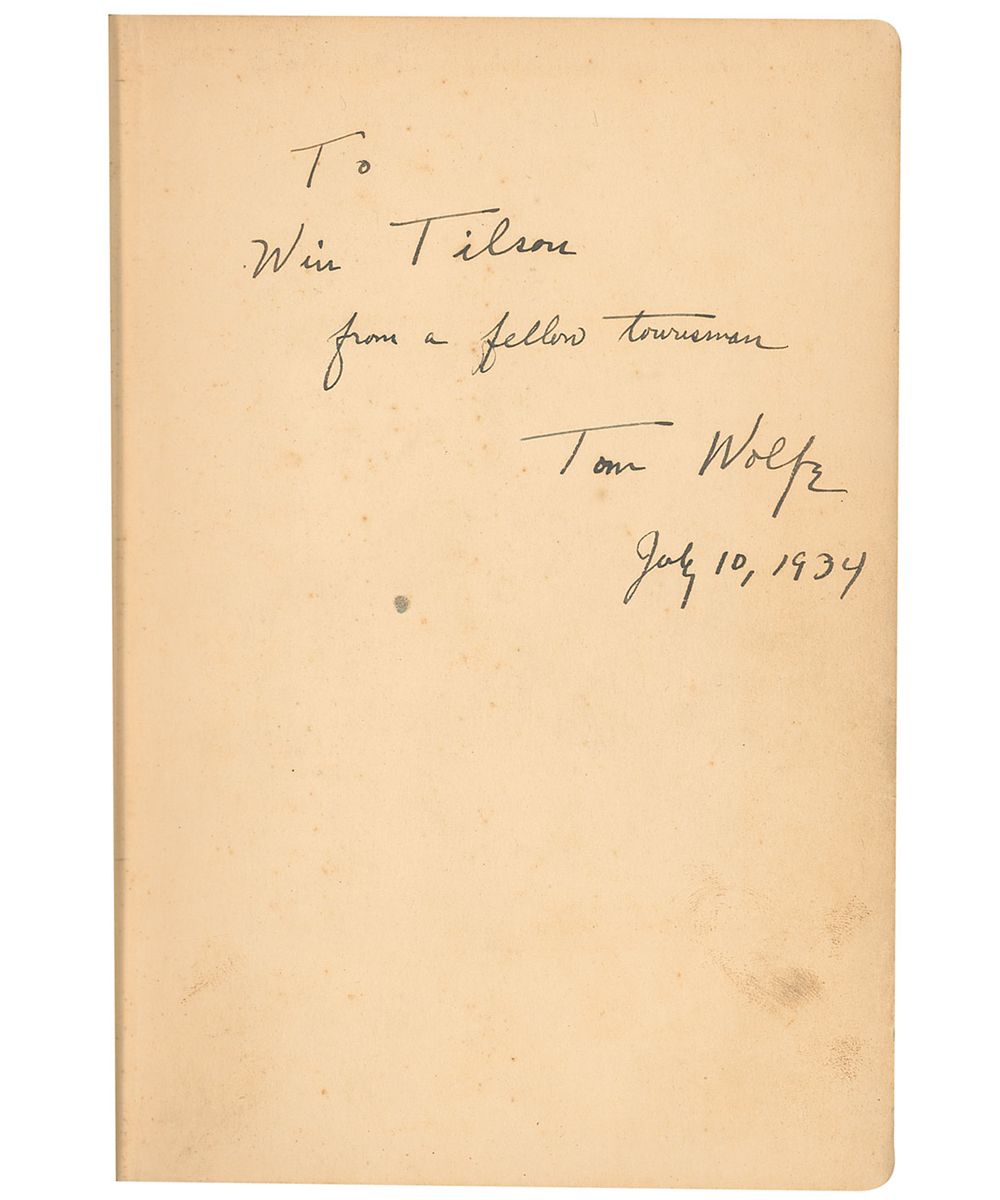 To
Win Tilson
from a fellow townsman
Tom Wolfe
July 10, 1934